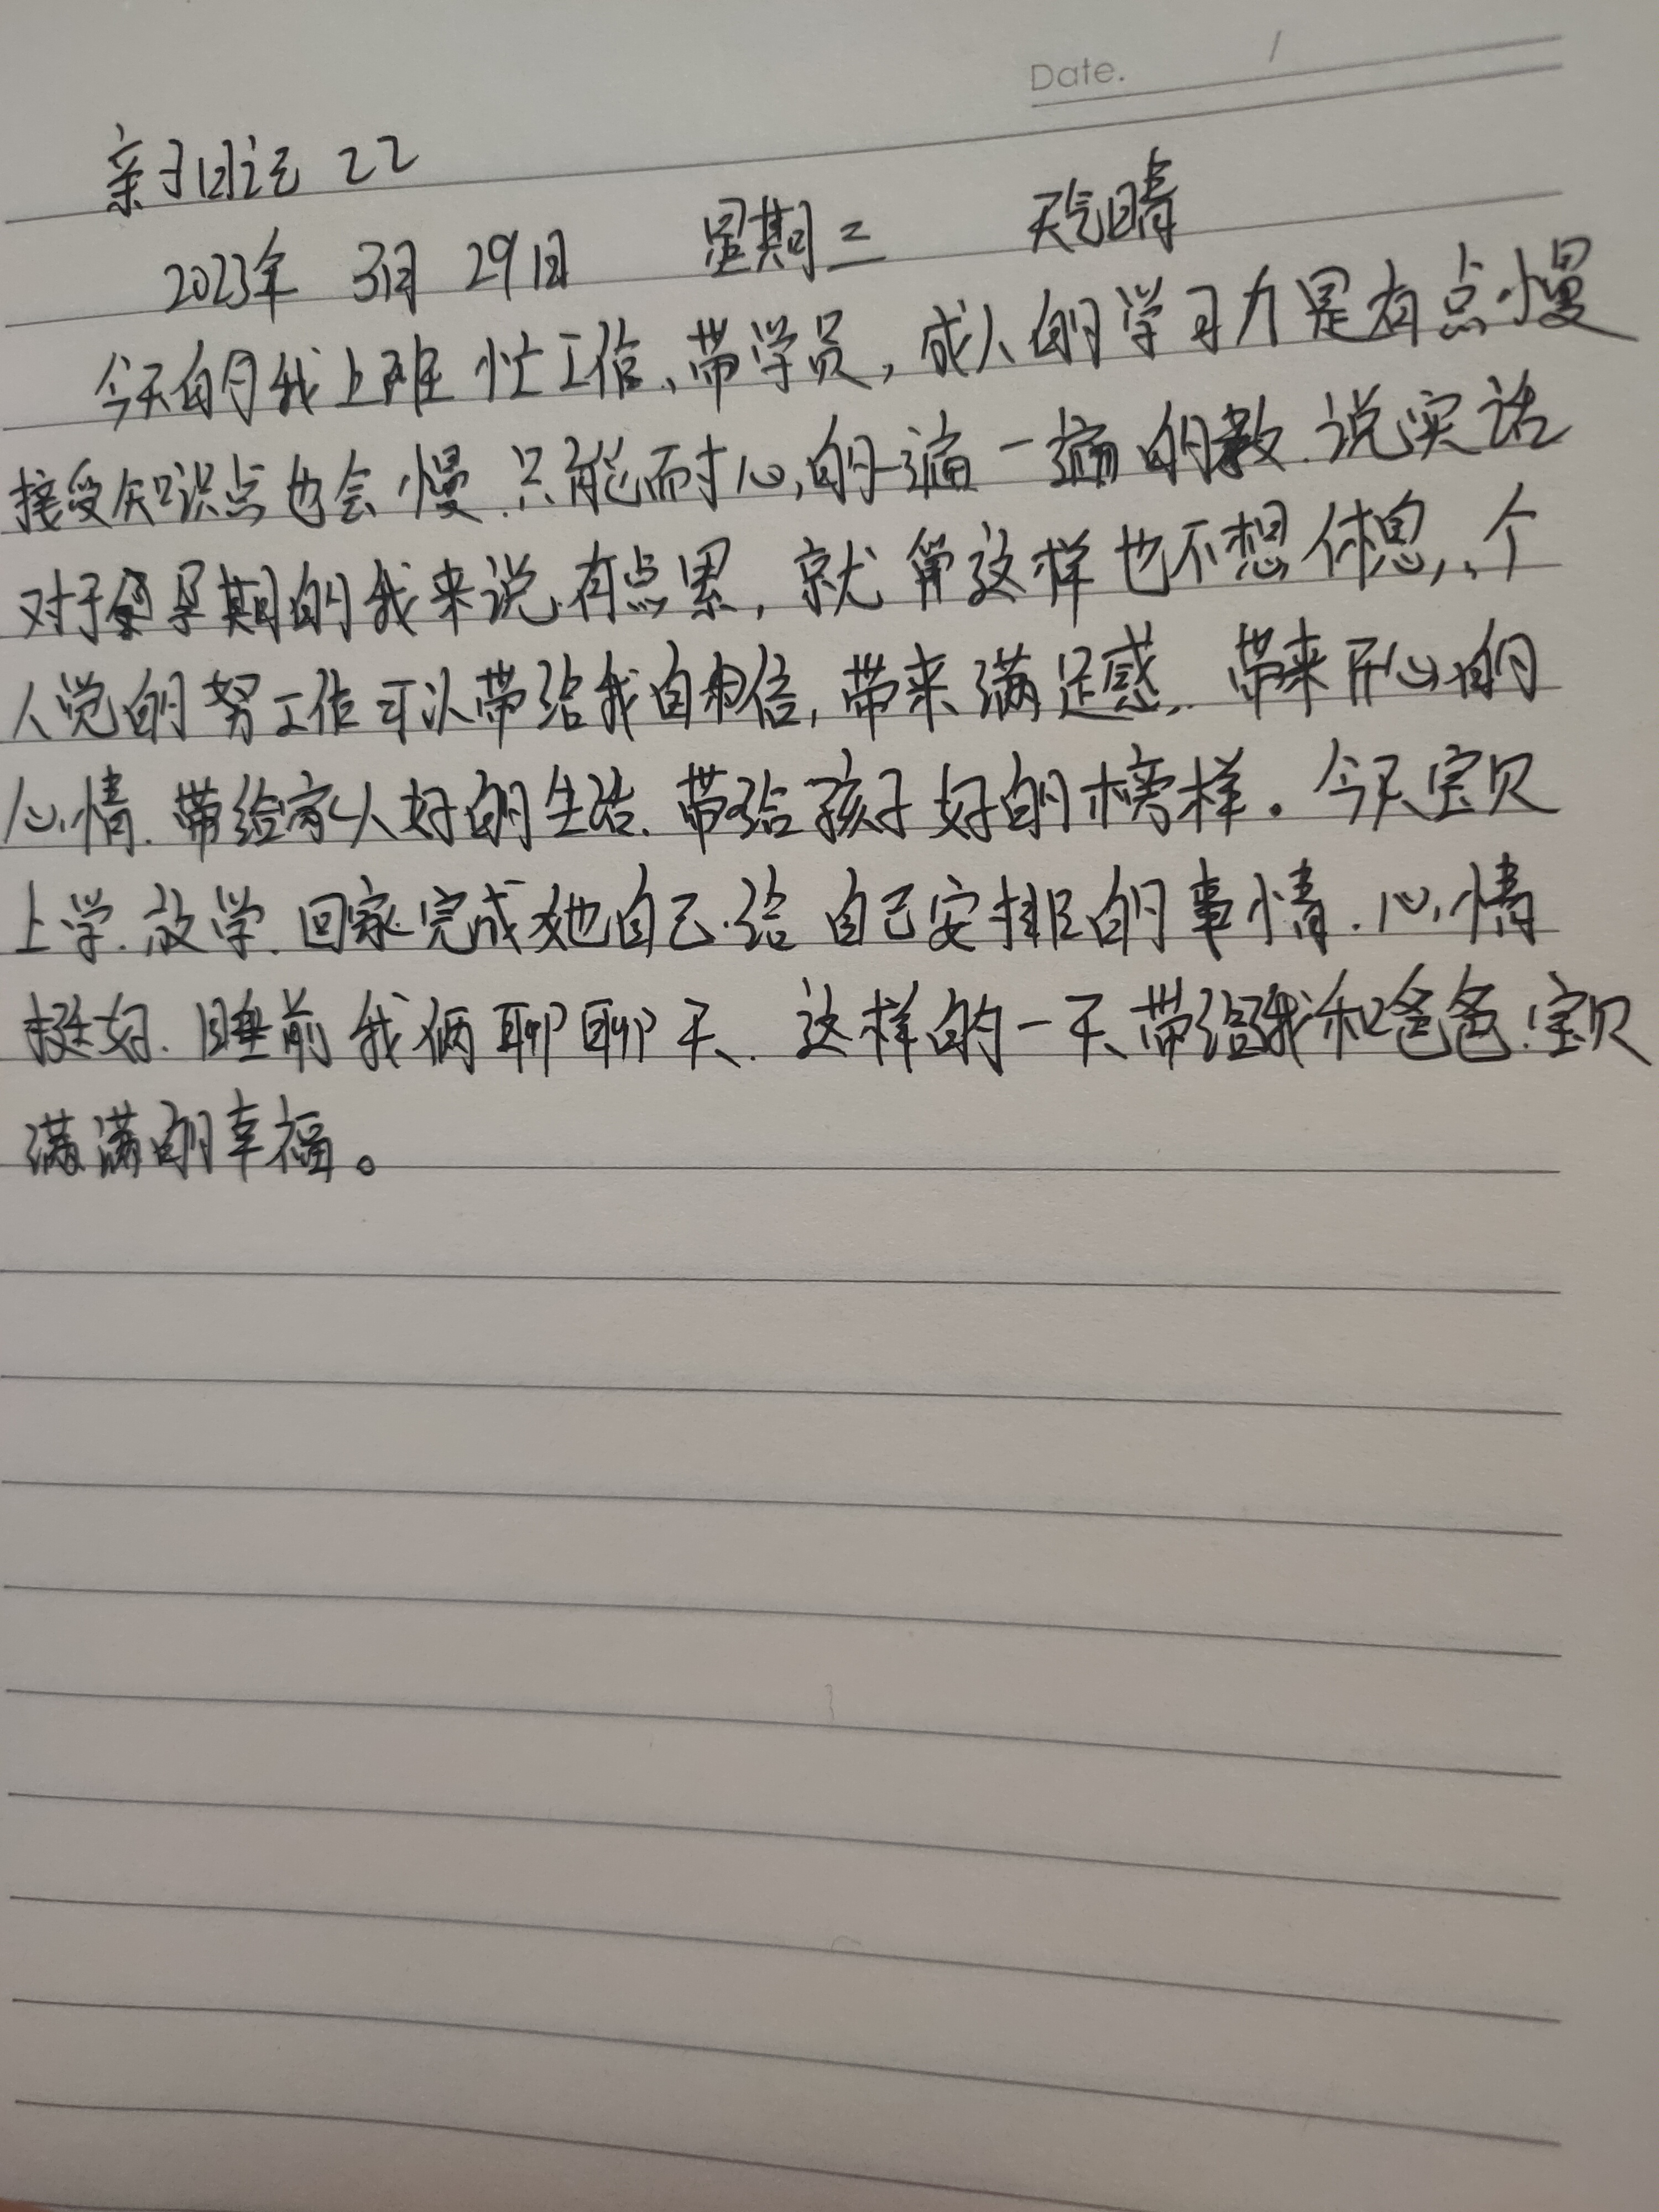 Date.
亲子日记 22
2023年 3月 29日 星期三 天气晴
今天的我上班忙工作、带学员，成人的学习力是有点慢
接受知识点也会慢.只能耐心的一遍一遍的教.说实话
对于孕期的我来说.有点累，就算这样也不想休息，个
人觉的努工作可以带给我自信，带来满足感.带来开心的
心情.带给家人好的生活.带给孩子好的榜样。今天宝贝
上学.放学.回家完成她自己给自己安排的事情.心情
挺好.睡前我俩聊聊天.这样的一天带给我和爸爸.宝贝
满满的幸福。